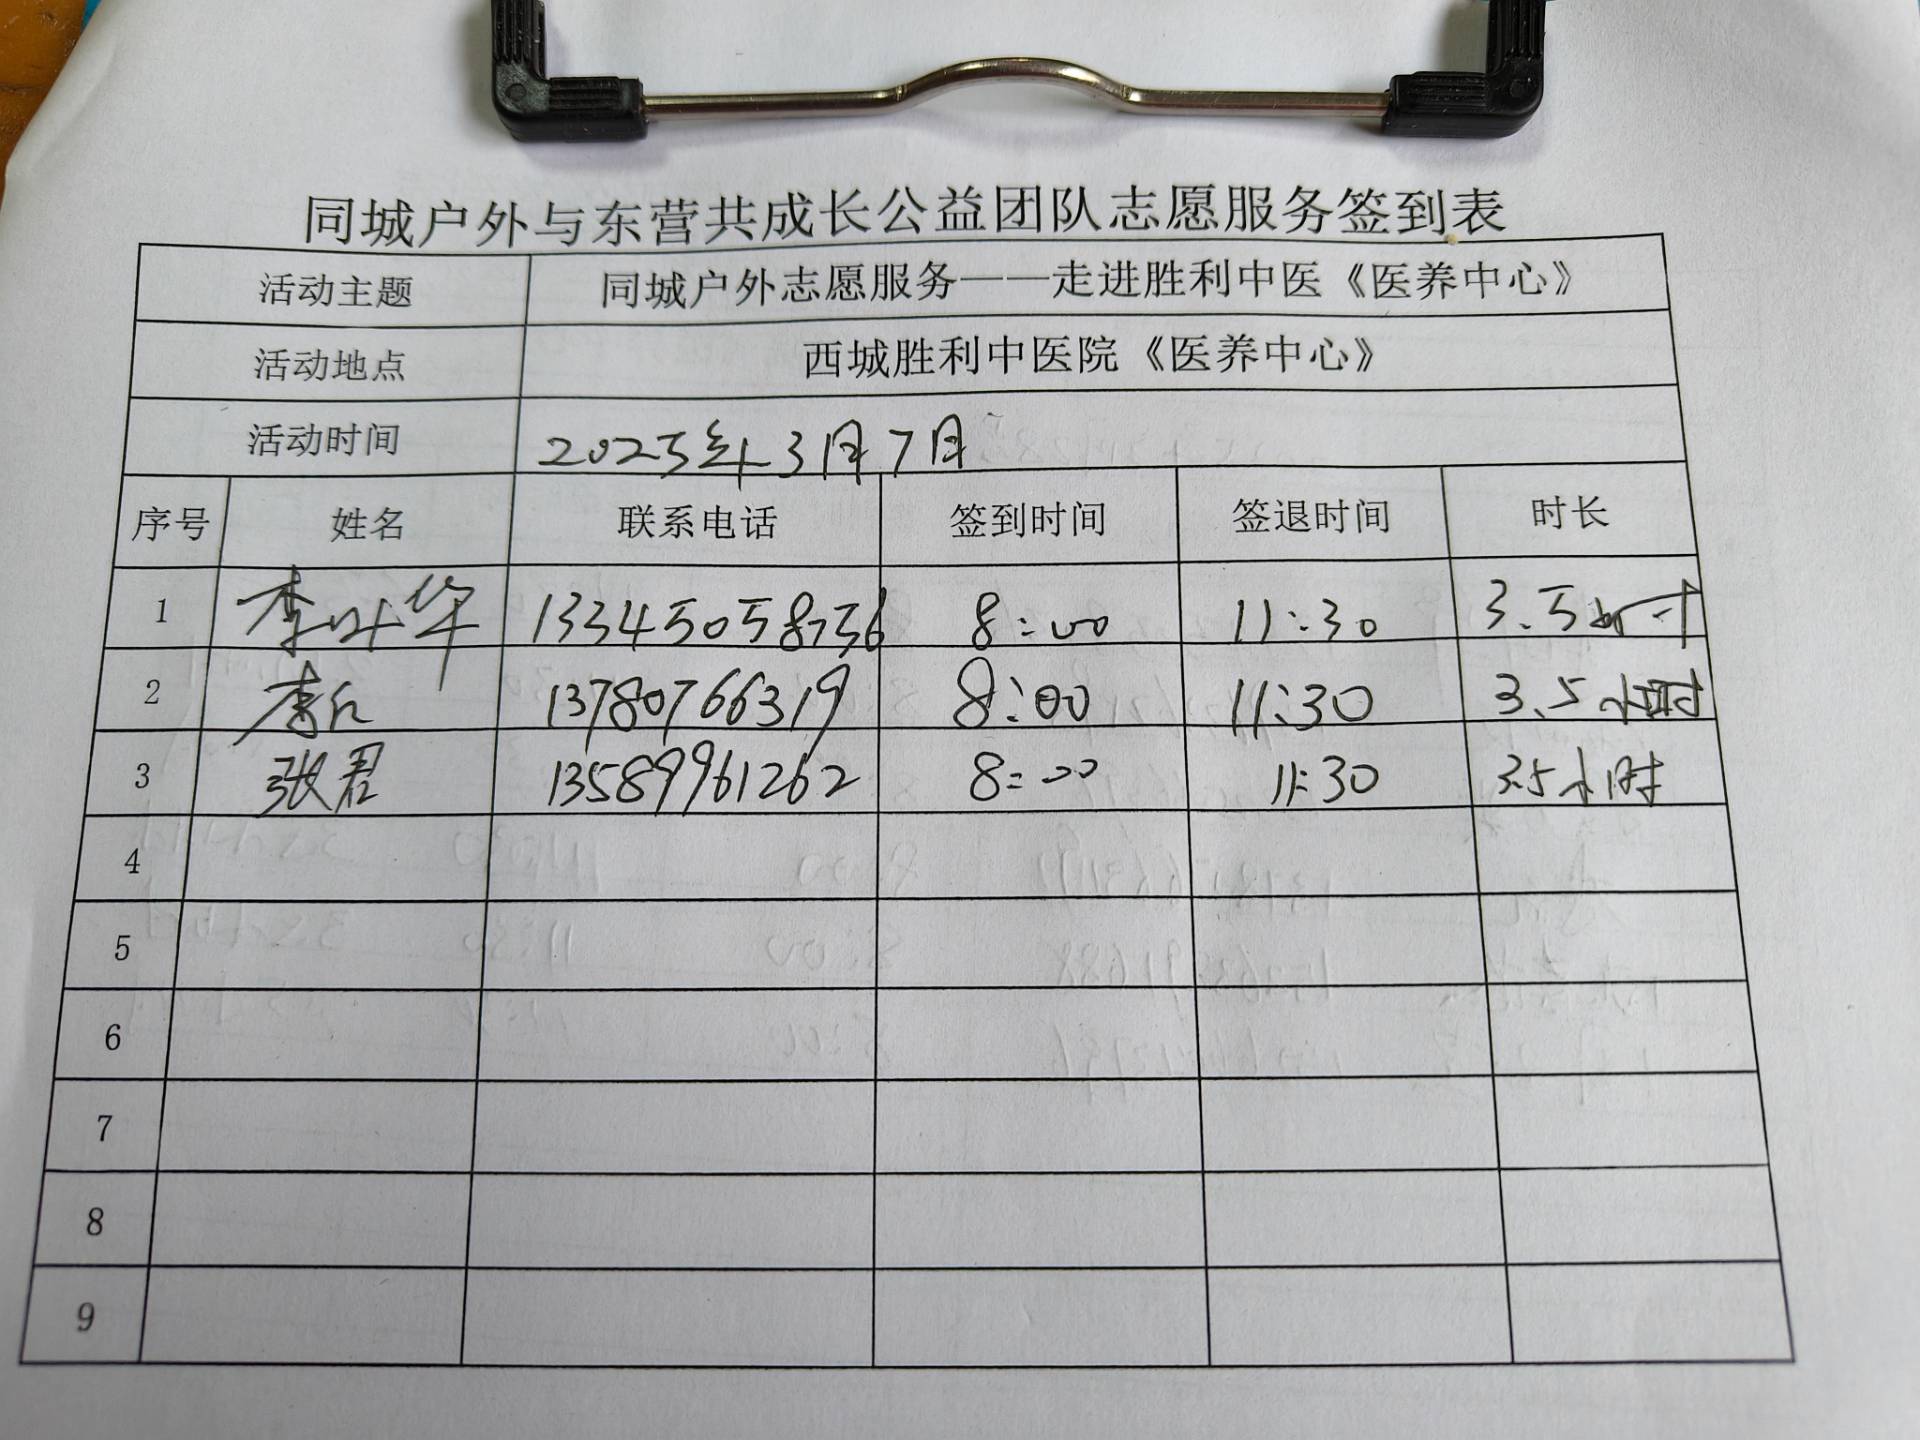 同城户外与东营共成长公益团队志愿服务签到表
活动主题 同城户外志愿服务——走进胜利中医《医养中心》
活动地点 西城胜利中医院《医养中心》
活动时间 2025年3月7日
序号 姓名 联系电话 签到时间 签退时间 时长
1 李叶华 13345058756 8:00 11:30 3.5小时
2 李红 13780766319 8:00 11:30 3.5小时
3 张君 13589961262 8:00 11:30 3.5小时
4
5
6
7
8
9